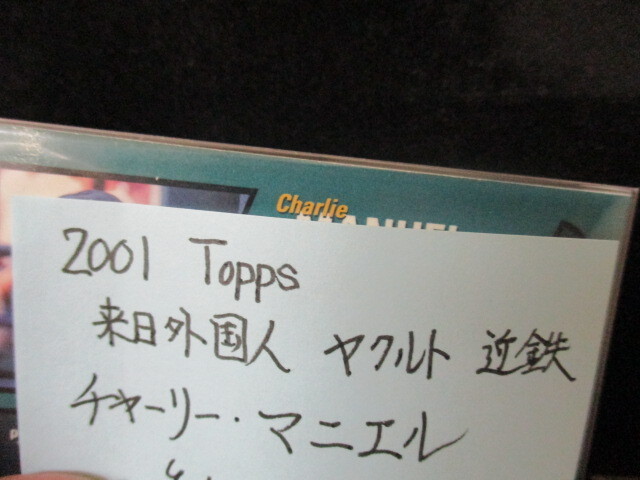 Charlie
MANUEL
2001 Topps
来日外国人 ヤクルト 近鉄
チャーリー・マニエル